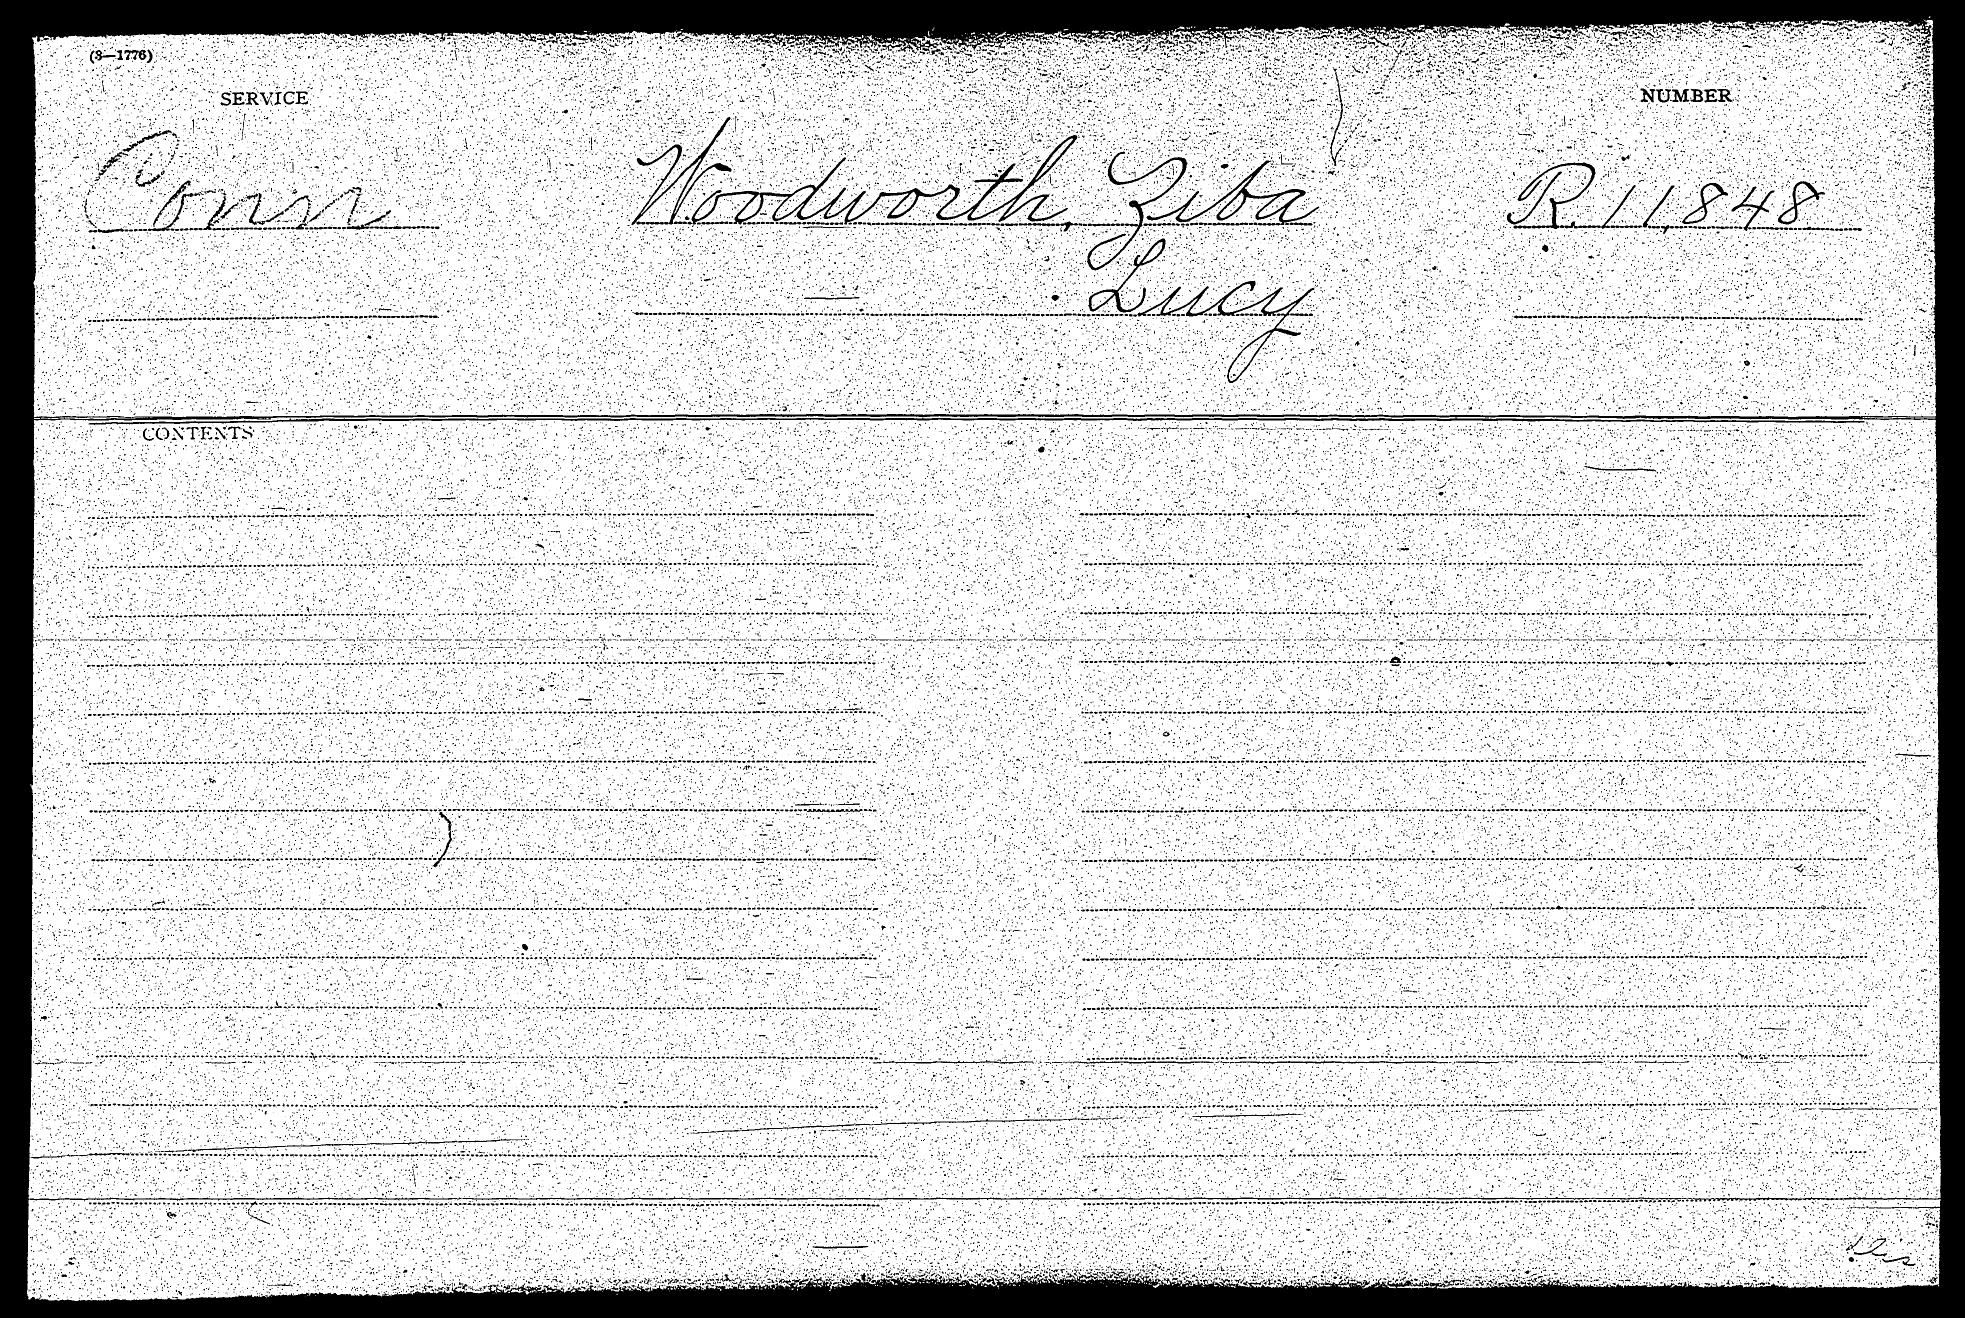 (3—1776)
SERVICE
NUMBER
Conn
Woodworth, Ziba
R. 11,848
Lucy
CONTENTS